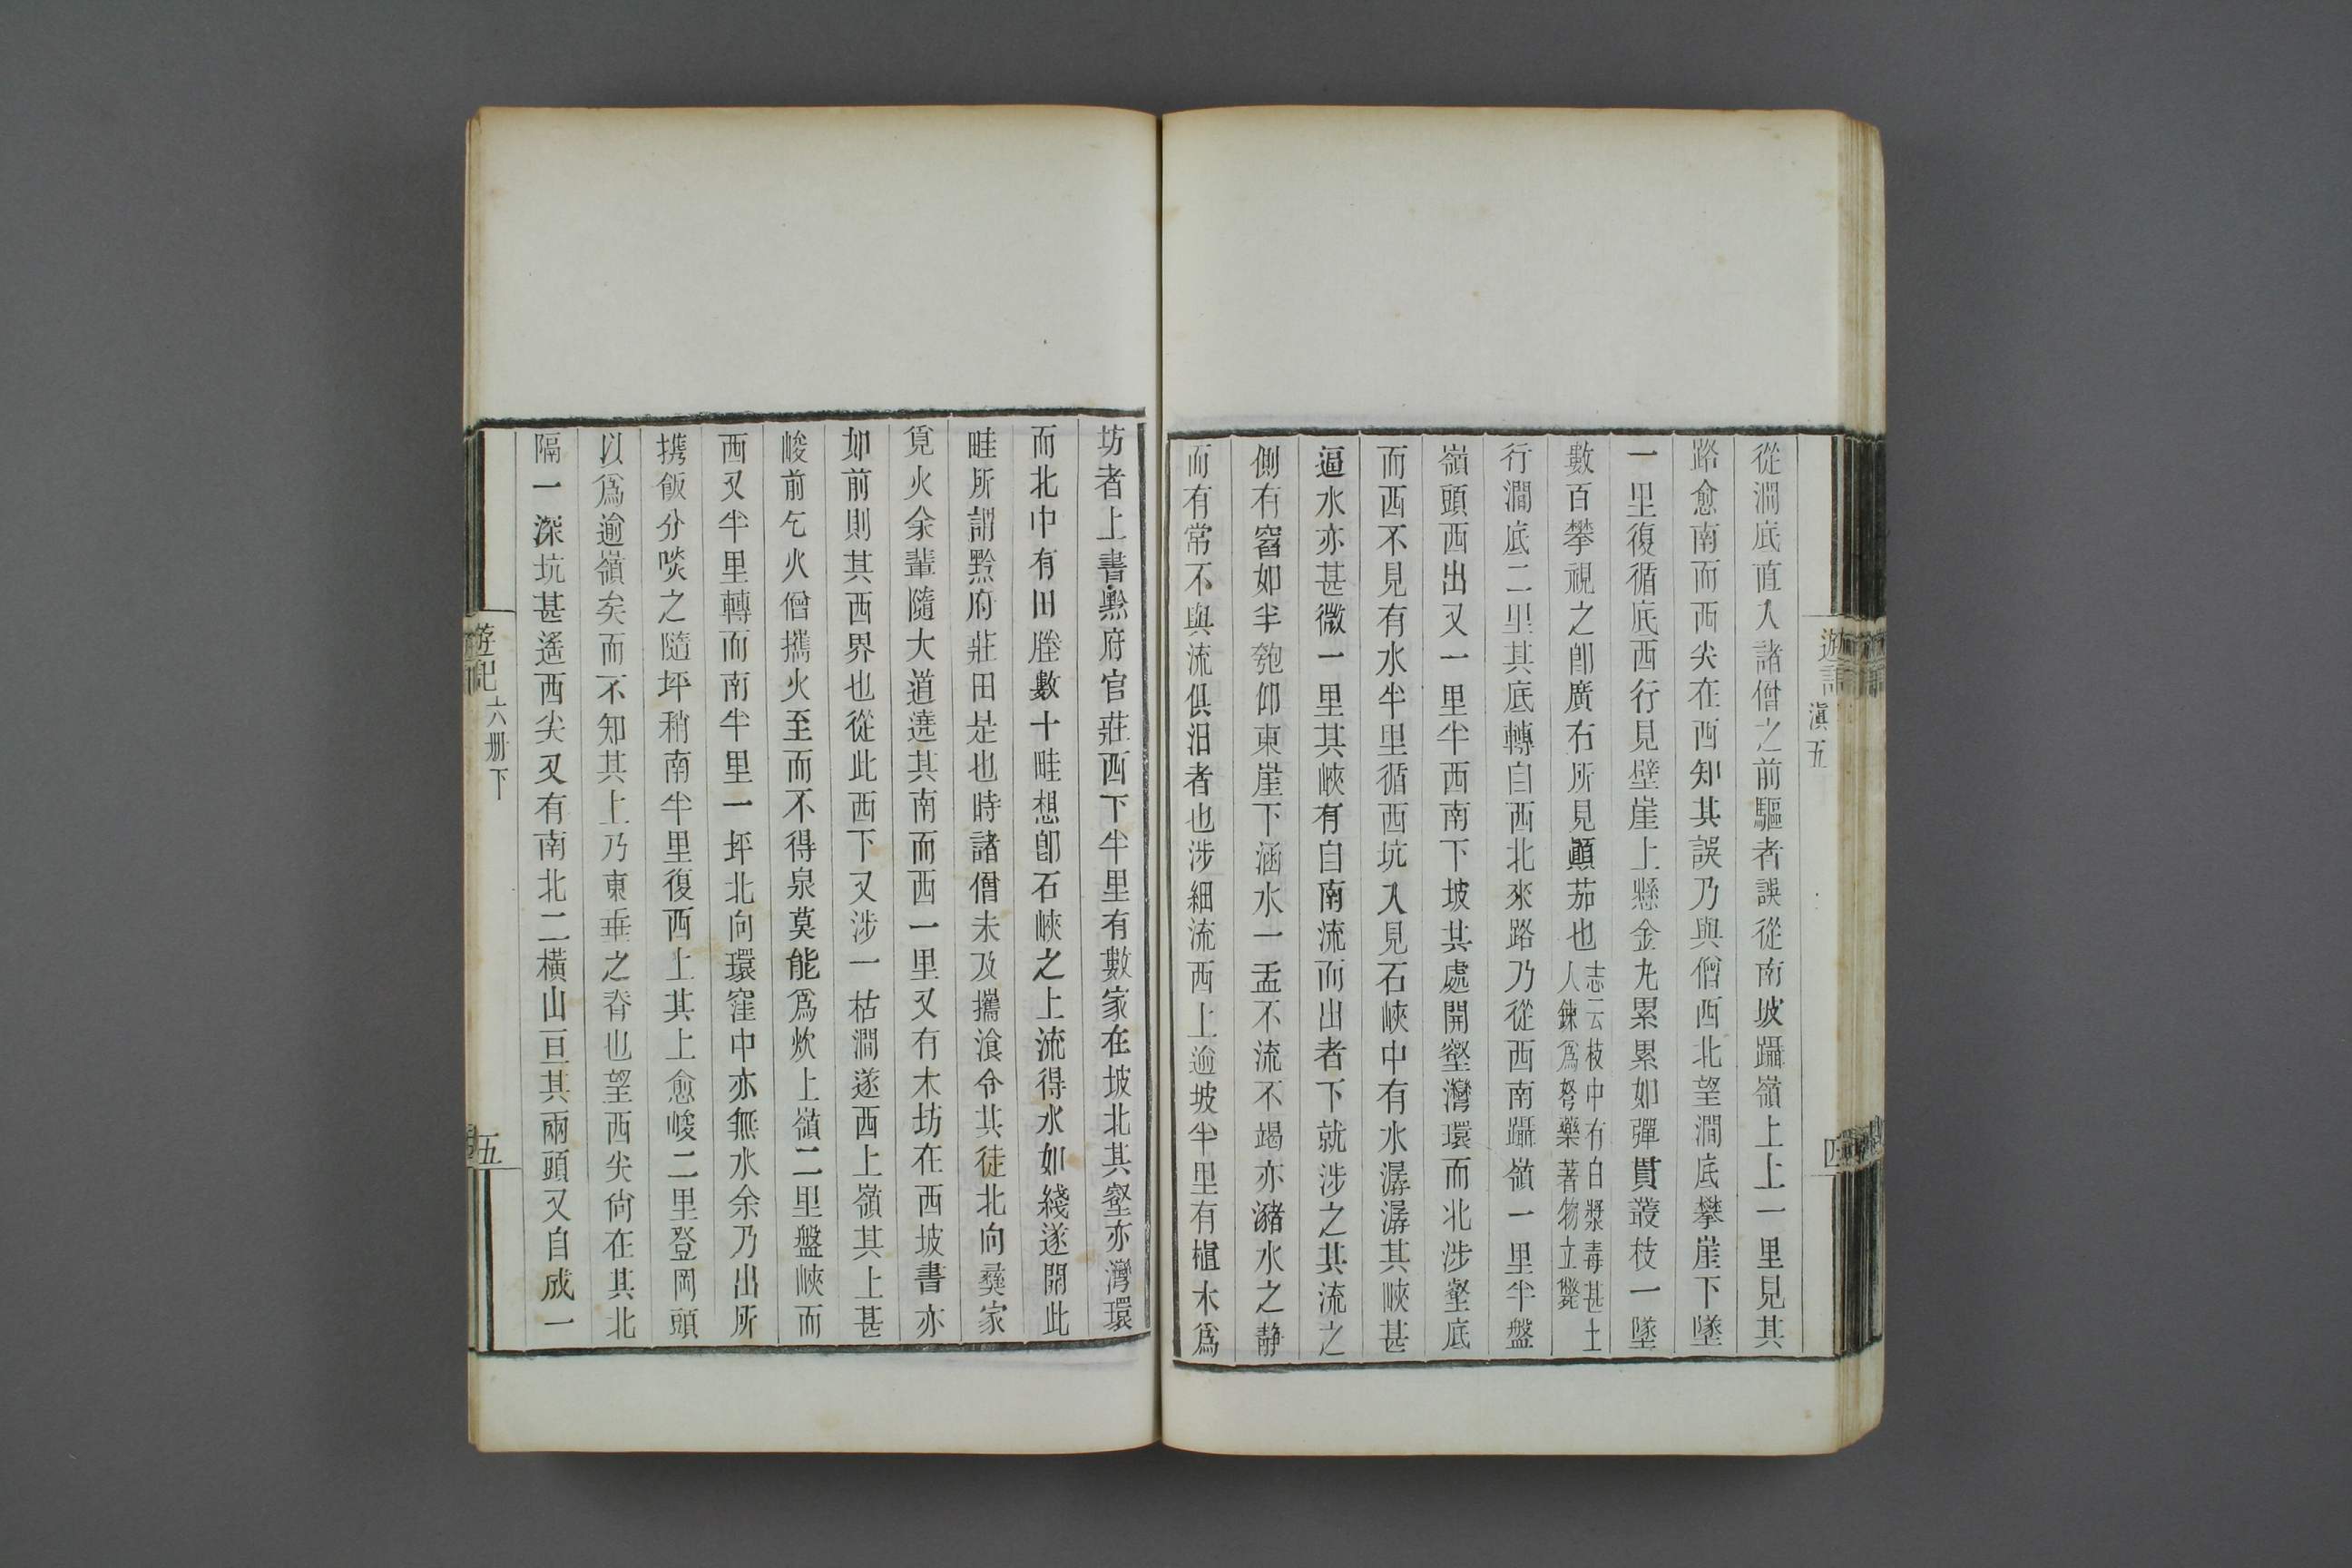 遊記 滇五
從澗底直入諸僧之前驅者誤從南坡躡嶺上上一里見其
路愈南而西尖在西知其誤乃與僧西北望澗底攀崖下墜
一里復循底西行見壁崖上懸金丸累累如彈貫叢枝一墜
數百攀視之卽廣右所見顚茄也志云枝中有白漿毒甚土人鍊爲弩藥著物立斃
行澗底二里其底轉自西北來路乃從西南躡嶺一里半盤
嶺頭西出又一里半西南下坡其處開壑灣環而北涉壑底
而西不見有水半里循西坑入見石峽中有水潺潺其峽甚
逼水亦甚微一里其峽有自南流而出者下就涉之其流之
側有窞如半匏仰東崖下涵水一盂不流不竭亦瀦水之靜
而有常不與流俱汨者也涉細流西上逾坡半里有植木爲
坊者上書黔府官莊西下半里有數家在坡北其壑亦灣環
而北中有田塍數十畦想卽石峽之上流得水如綫遂開此
畦所謂黔府莊田是也時諸僧未及攜湌令其徒北向彝家
覓火余輩隨大道遶其南而西一里又有木坊在西坡書亦
如前則其西界也從此西下又涉一枯澗遂西上嶺其上甚
峻前乞火僧攜火至而不得泉莫能爲炊上嶺二里盤峽而
西又半里轉而南半里一坪北向環窪中亦無水余乃出所
携飯分啖之隨坪稍南半里復西上其上愈峻二里登岡頭
以爲逾嶺矣而不知其上乃東垂之脊也望西尖尙在其北
隔一深坑甚遙西尖又有南北二橫山亘其兩頭又自成一
遊記 六册下 五